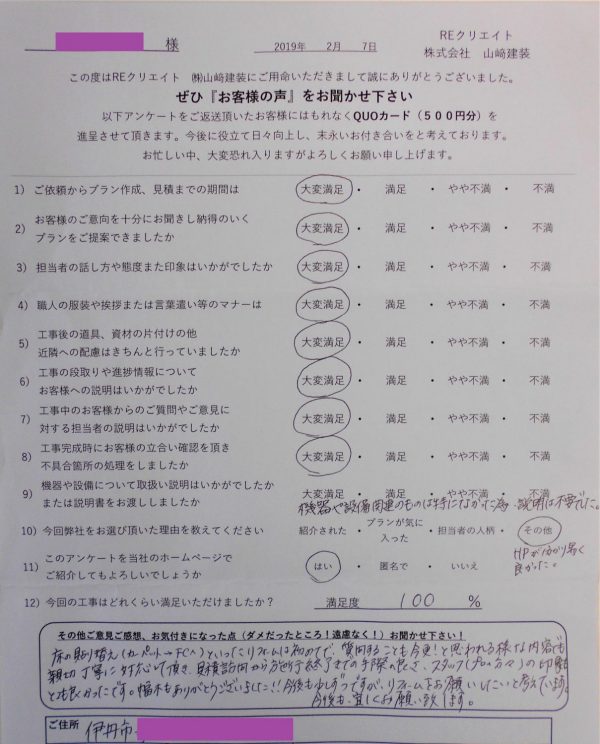 様
2019年 2月 7日
REクリエイト
株式会社 山﨑建装
この度はREクリエイト ㈱山﨑建装にご用命いただきまして誠にありがとうございました。
ぜひ『お客様の声』をお聞かせ下さい
以下アンケートをご返送頂いたお客様にはもれなくQUOカード（５００円分）を
進呈させて頂きます。今後に役立て日々向上し、末永いお付き合いをと考えております。
お忙しい中、大変恐れ入りますがよろしくお願い申し上げます。
1）ご依頼からプラン作成、見積までの期間は 大変満足 ・ 満足 ・ やや不満 ・ 不満
2）お客様のご意向を十分にお聞きし納得のいく
プランをご提案できましたか 大変満足 ・ 満足 ・ やや不満 ・ 不満
3）担当者の話し方や態度また印象はいかがでしたか 大変満足 ・ 満足 ・ やや不満 ・ 不満
4）職人の服装や挨拶または言葉遣い等のマナーは 大変満足 ・ 満足 ・ やや不満 ・ 不満
5）工事後の道具、資材の片付けの他
近隣への配慮はきちんと行っていましたか 大変満足 ・ 満足 ・ やや不満 ・ 不満
6）工事の段取りや進捗情報について
お客様への説明はいかがでしたか 大変満足 ・ 満足 ・ やや不満 ・ 不満
7）工事中のお客様からのご質問やご意見に
対する担当者の説明はいかがでしたか 大変満足 ・ 満足 ・ やや不満 ・ 不満
8）工事完成時にお客様の立合い確認を頂き
不具合箇所の処理をしましたか 大変満足 ・ 満足 ・ やや不満 ・ 不満
9）機器や設備について取扱い説明はいかがでしたか
または説明書をお渡ししましたか 大変満足 ・ 満足 ・ やや不満 ・ 不満
機器や設備関連のものは特になかった為、説明は不要でした。
10）今回弊社をお選び頂いた理由を教えてください 紹介された ・ プランが気に入った ・ 担当者の人柄 ・ その他
HPが分かり易く
良かった。
11）このアンケートを当社のホームページで
ご紹介してもよろしいでしょうか はい ・ 匿名で ・ いいえ
12）今回の工事はどれくらい満足いただけましたか？ 満足度 100 %
その他ご意見ご感想、お気付きになった点（ダメだったところ！遠慮なく！）お聞かせ下さい！
床の貼り替え(カーペット→FCへ)といったリフォームは初めてで、質問することも今更！と思われる様な内容でも
親切丁寧に対応して頂き、見積訪問から施行終了までの手際の良さ、スタッフ(プロの方々)の印象
とも良かったです。幅木もありがとうございました!!今後も少しずつですが、リフォームをお願いしたいと考えています。
今後も宜しくお願い致します。
ご住所 伊丹市